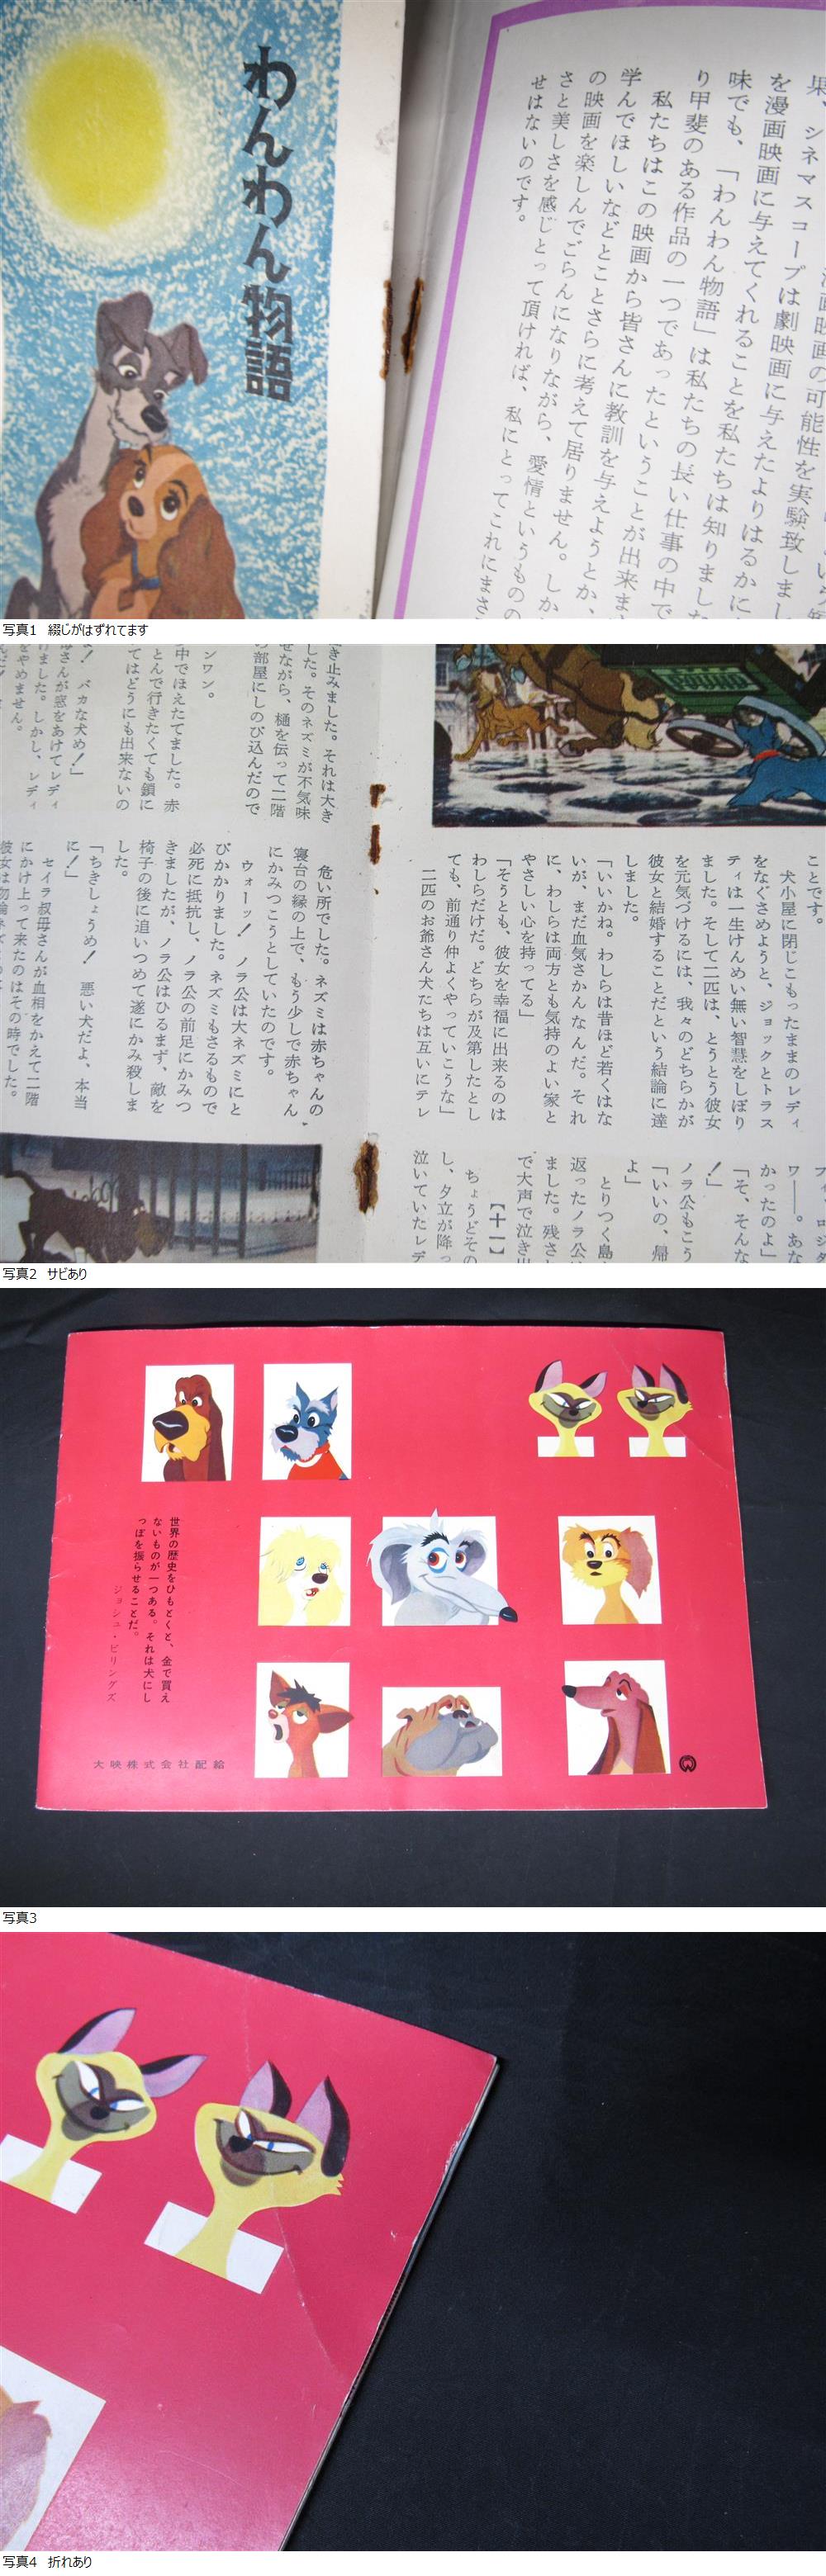 わんわん物語
果、シネマスコープは劇映画に与えたよりはるかに
を漫画映画に与えてくれることを私たちは知りました
味でも、「わんわん物語」は私たちの長い仕事の中で
り甲斐のある作品の一つであったということが出来ま
私たちはこの映画から皆さんに教訓を与えようとか、
学んでほしいなどとことさらに考えて居りません。しか
の映画を楽しんでごらんになりながら、愛情というものの
さと美しさを感じとって頂ければ、私にとってこれにまさ
せはないのです。
写真1 綴じがはずれてます
ことです。
犬小屋に閉じこもったままのレディ
をなぐさめようと、ジョックとトラス
ティは一生けんめい無い智慧をしぼり
ました。そして二匹は、とうとう彼女
を元気づけるには、我々のどちらかが
彼女と結婚することだという結論に達
しました。
「いいかね。わしらは昔ほど若くはな
いが、まだ血気さかんなんだ。それ
に、わしらは両方とも気持のよい家と
やさしい心を持ってる」
「そうとも、彼女を幸福に出来るのは
わしらだけだ。どちらが及第したとし
ても、前通り仲よくやっていこうな」
二匹のお爺さん犬たちは互いにテレ
ワ――。あな
かったのよ」
「そ、そんな
！」
ノラ公もこう
「いいの、帰
よ」
とりつく島
返ったノラ公は
ました。残され
で大声で泣き出
【十一】
ちょうどその
し、夕立が降っ
泣いていたレデ
き止みました。それは大き
した。そのネズミが不気味
せながら、樋を伝って二階
ら部屋にしのび込んだので
ンワン。
中でほえたてました。赤
とんで行きたくても鎖に
てはどうにも出来ないの
よ！ バカな犬め！」
母さんが窓をあけてレディ
けました。しかし、レディ
をやめません。
危い所でした。ネズミは赤ちゃんの
寝台の縁の上で、もう少しで赤ちゃん
にかみつこうとしていたのです。
ウォーッ！ ノラ公は大ネズミにと
びかかりました。ネズミもさるもので
必死に抵抗し、ノラ公の前足にかみつ
きましたが、ノラ公はひるまず、敵を
椅子の後に追いつめて遂にかみ殺しま
した。
「ちきしょうめ！ 悪い犬だよ、本当
に！」
セイラ叔母さんが血相をかえて二階
にかけ上って来たのはその時でした。
写真2 サビあり
世界の歴史をひもどくと、金で買え
ないものが一つある。それは犬にし
っぽを振らせることだ。
ジョシュ・ビリングズ
大映株式会社配給
写真3
写真4 折れあり